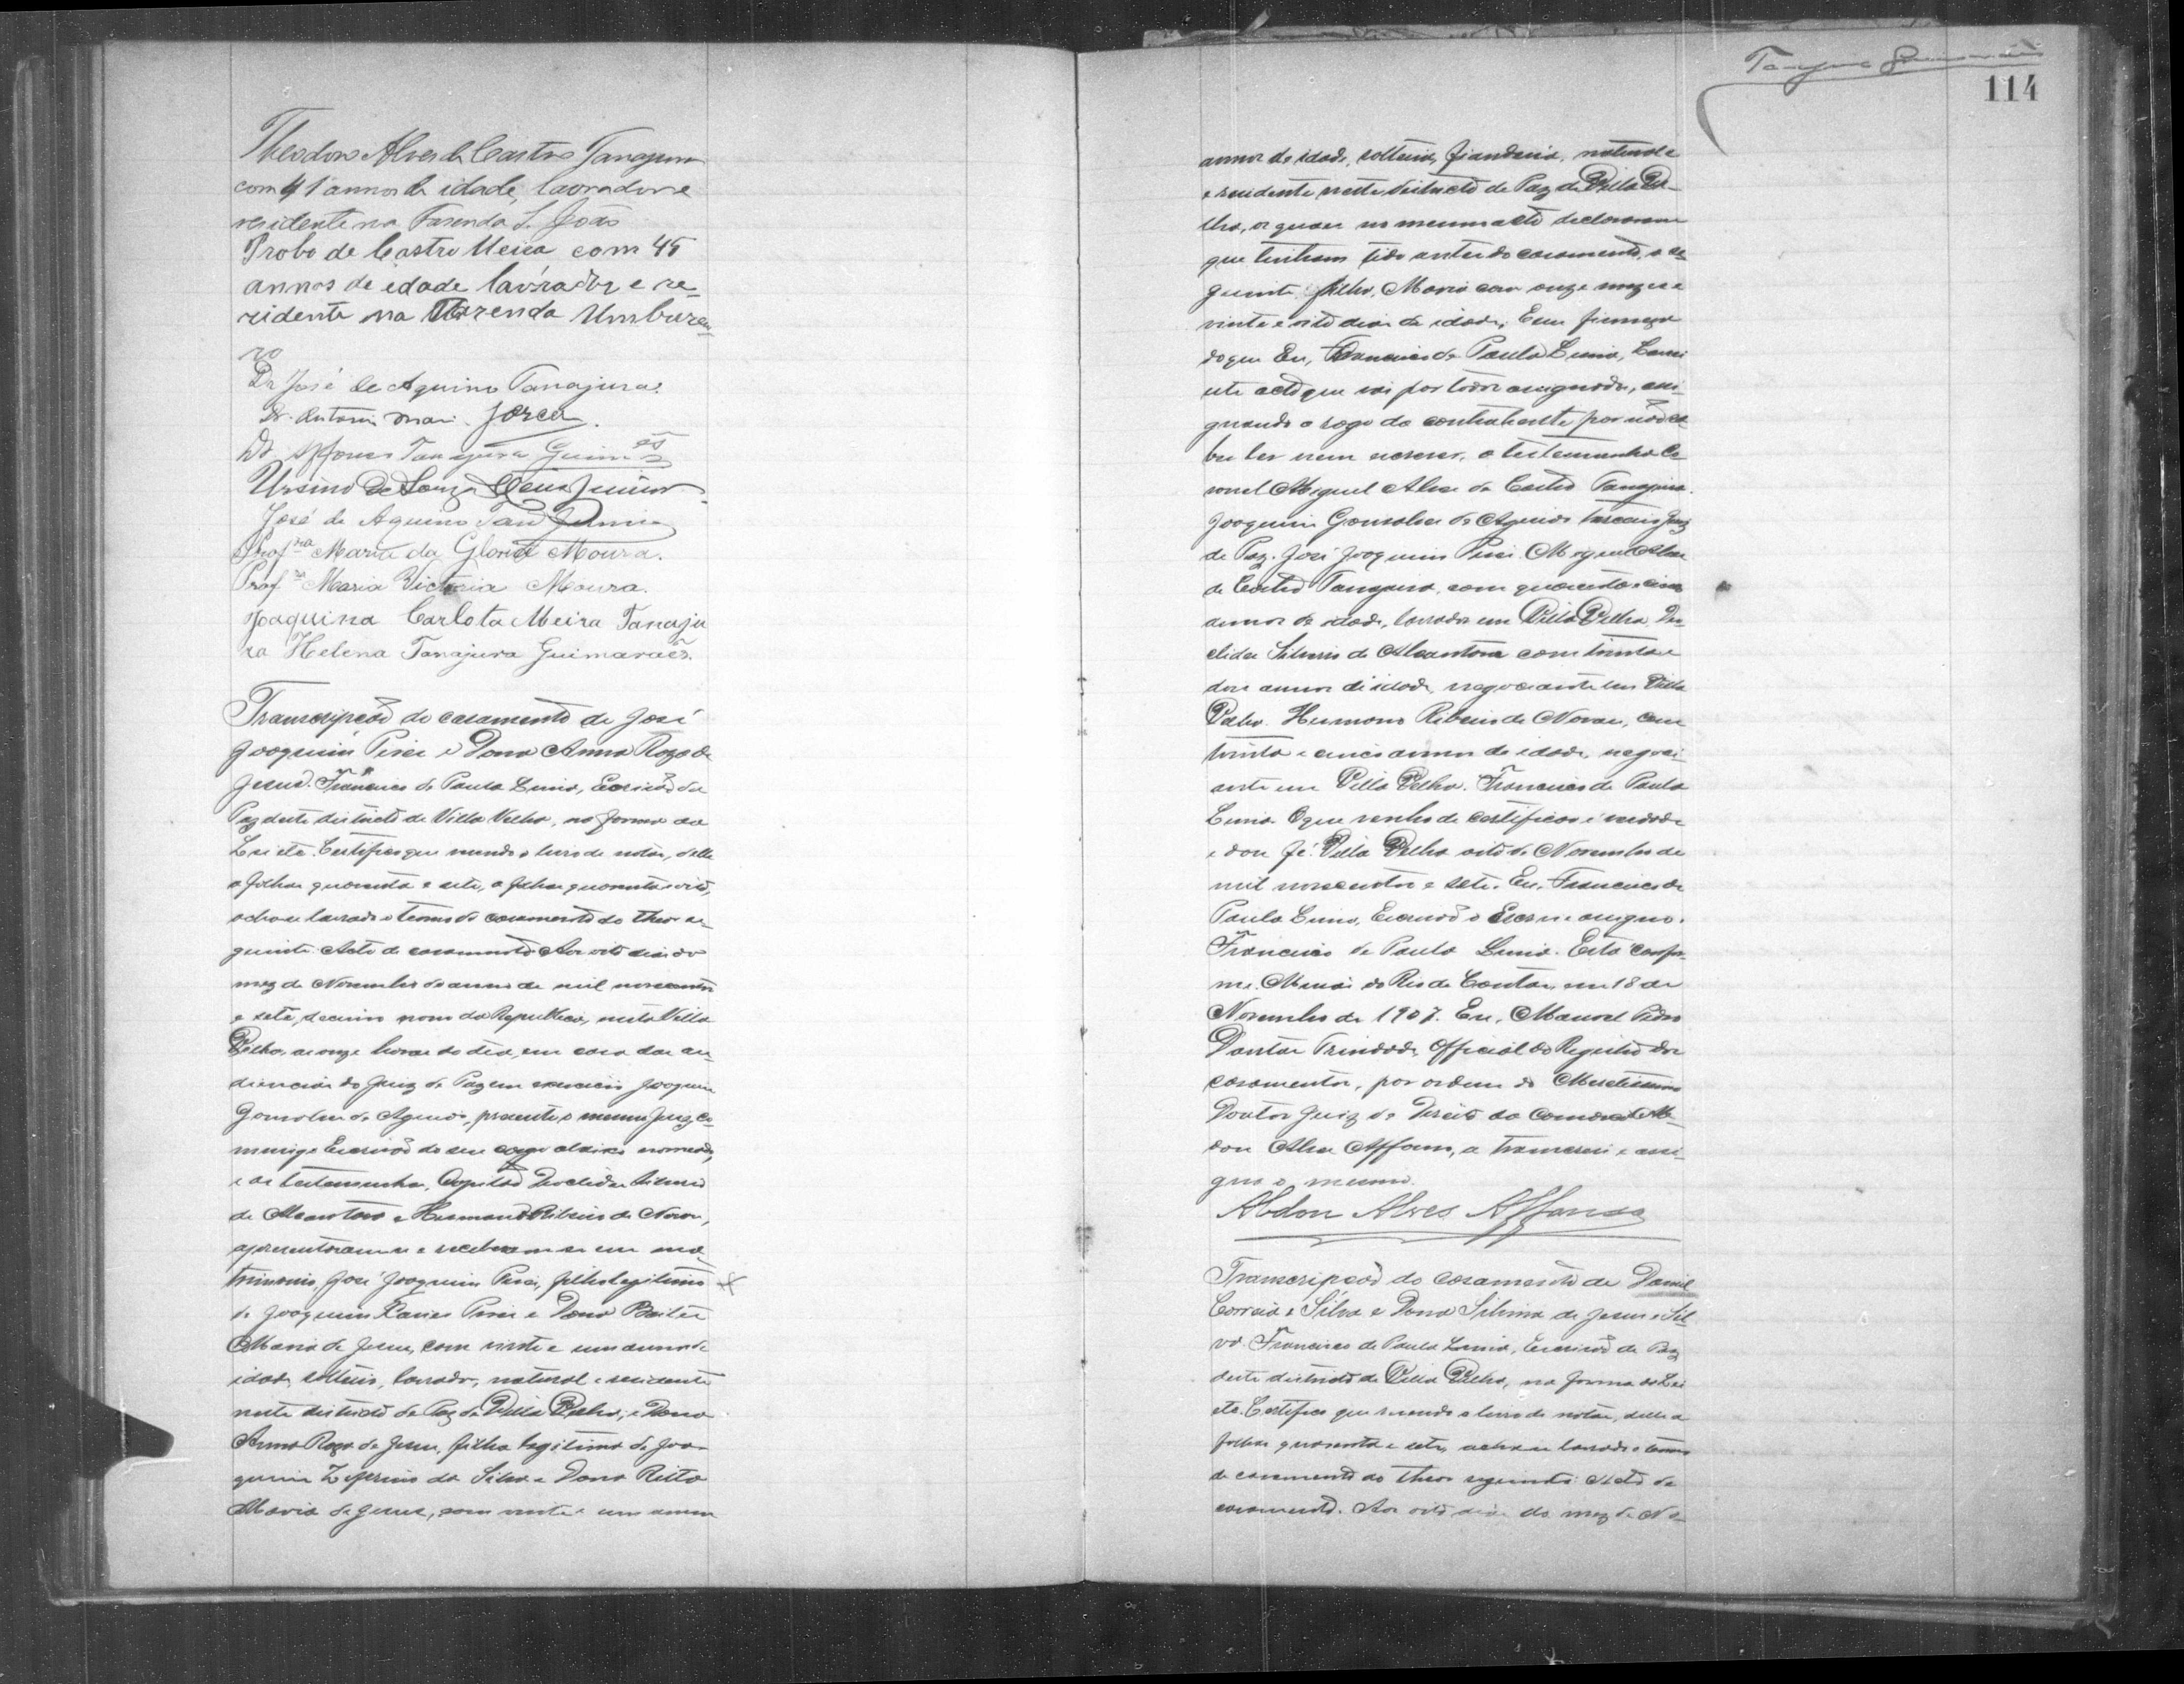 Theodoro Alves de Castro Tanajura
com 41 annos de idade, lavrador e
residente na Fazenda S. João
Probo de Castro Meira com 45
annos de idade lavrador e re-
zidente na Fazenda Umburan
ro
Dr José de Aquino Tanajura.
Dr. Antonio
Dr Affonso Tanajura Guim.es
Ursino de Souza Meira Junior
José de Aquino Tan.
Prof.ra Maria da Gloria Moura.
Prof.ra Maria Victoria Moura.
Joaquina Carlota Meira Tanaju
ra Helena Tanajura Guimarães.
Transcripção do casamento de José
Joaquim Pires e Dona Anna Roza de
Jesus. Francisco de Paula Lima, Escrivão de
Paz deste districto de Villa Velha, na forma da
Lei etc. Certifico que revendo o livro de notas, delle
a folhas quarenta e sete, a folhas quarenta e oito,
acha-se lavrado o termo de casamento do theor se-
guinte. Acto de casamento. Aos oito dias do
mez de Novembro do anno de mil novecentos
e sete, decimo nono da Republica, nesta Villa
Velha, as onze horas do dia, em casa das au-
diencias do Juiz de Paz em exercicio Joaquim
Gonsalves de Aguiar, presente o mesmo Juiz, co-
migo Escrivão do seu cargo abaixo nomeado,
e as testemunhas, Capitão Deoclides Silverio
de Alcantara e Hermano Ribeiro de Novaes,
apresentaram-se e receberam-se em ma-
trimonio, José Joaquim Pires, filho legitimo
de Joaquim Xavier Pires e Dona
Maria de Jesus, com vinte e um annos de
idade, solteiro, lavrador, natural e residente
neste districto de Paz de Villa Velha; e Dona
Anna Roza de Jesus, filha legitima de Joa-
quim Zeferino da Silva e Dona Ritta
Maria de Jesus, com vinte e um annos
114
annos de idade, solteira, fiandeira, natural e
e residente neste districto de Paz de Villa Ve-
lha, os quaes no mesmo acto declararam
que tinham tido antes do casamento, o se-
guinte filho, Maria com onze mezes e
vinte e oito dias de idade. E em firmeza
do que Eu, Francisco de Paula Lima, Lavrei
este acto que vai por todos assignado, assi-
gnando a rogo da contrahente por não sa
ber ler nem escrever, a testemunha Co-
ronel Miguel Alves de Castro Tanajura.
Joaquim Gonsalves de Aguiar terceiro Juiz
de Paz. José Joaquim Pires. Miguel Alves
de Castro Tanajura, com quarenta e cinco
annos de idade, lavrador em Villa Velha. Deo-
clides Silverio de Alcantara com trinta e
dois annos de idade, negociante em Villa
Velha. Hermano Ribeiro de Novaes, com
trinta e cinco annos de idade, negoci-
ante em Villa Velha. Francisco de Paula
Lima. O que venho de certificar é verdade
e dou fé. Villa Velha oito de Novembro de
mil novecentos e sete. Eu, Francisco de
Paula Lima, Escrivão o Escrevi e assigno.
Francisco de Paula Lima. Está confor-
me. Minas do Rio de Contas, em 18 de
Novembro de 1907. Eu, Manoel Pedro
Dantas Trindade, Official do Registro dos
casamentos, por ordem do Meretissimo
Doutor Juiz de Direito da Comarca Ab-
don Alves Affonso, a transcrevi e assi-
gna o mesmo.
Abdon Alves Affonso
Transcripção do casamento de Daniel
Correia e Silva e Dona Silvina de Jesus e Sil-
va. Francisco de Paula Lima, Escrivão de Paz
deste districto de Villa Velha, na forma da Lei
etc. Certifico que revendo o livro de notas, delle a
folhas quarenta e sete, acha-se lavrado o termo
de casamento do theor seguinte: Acto de
casamento. Aos oito dias do mez de No-